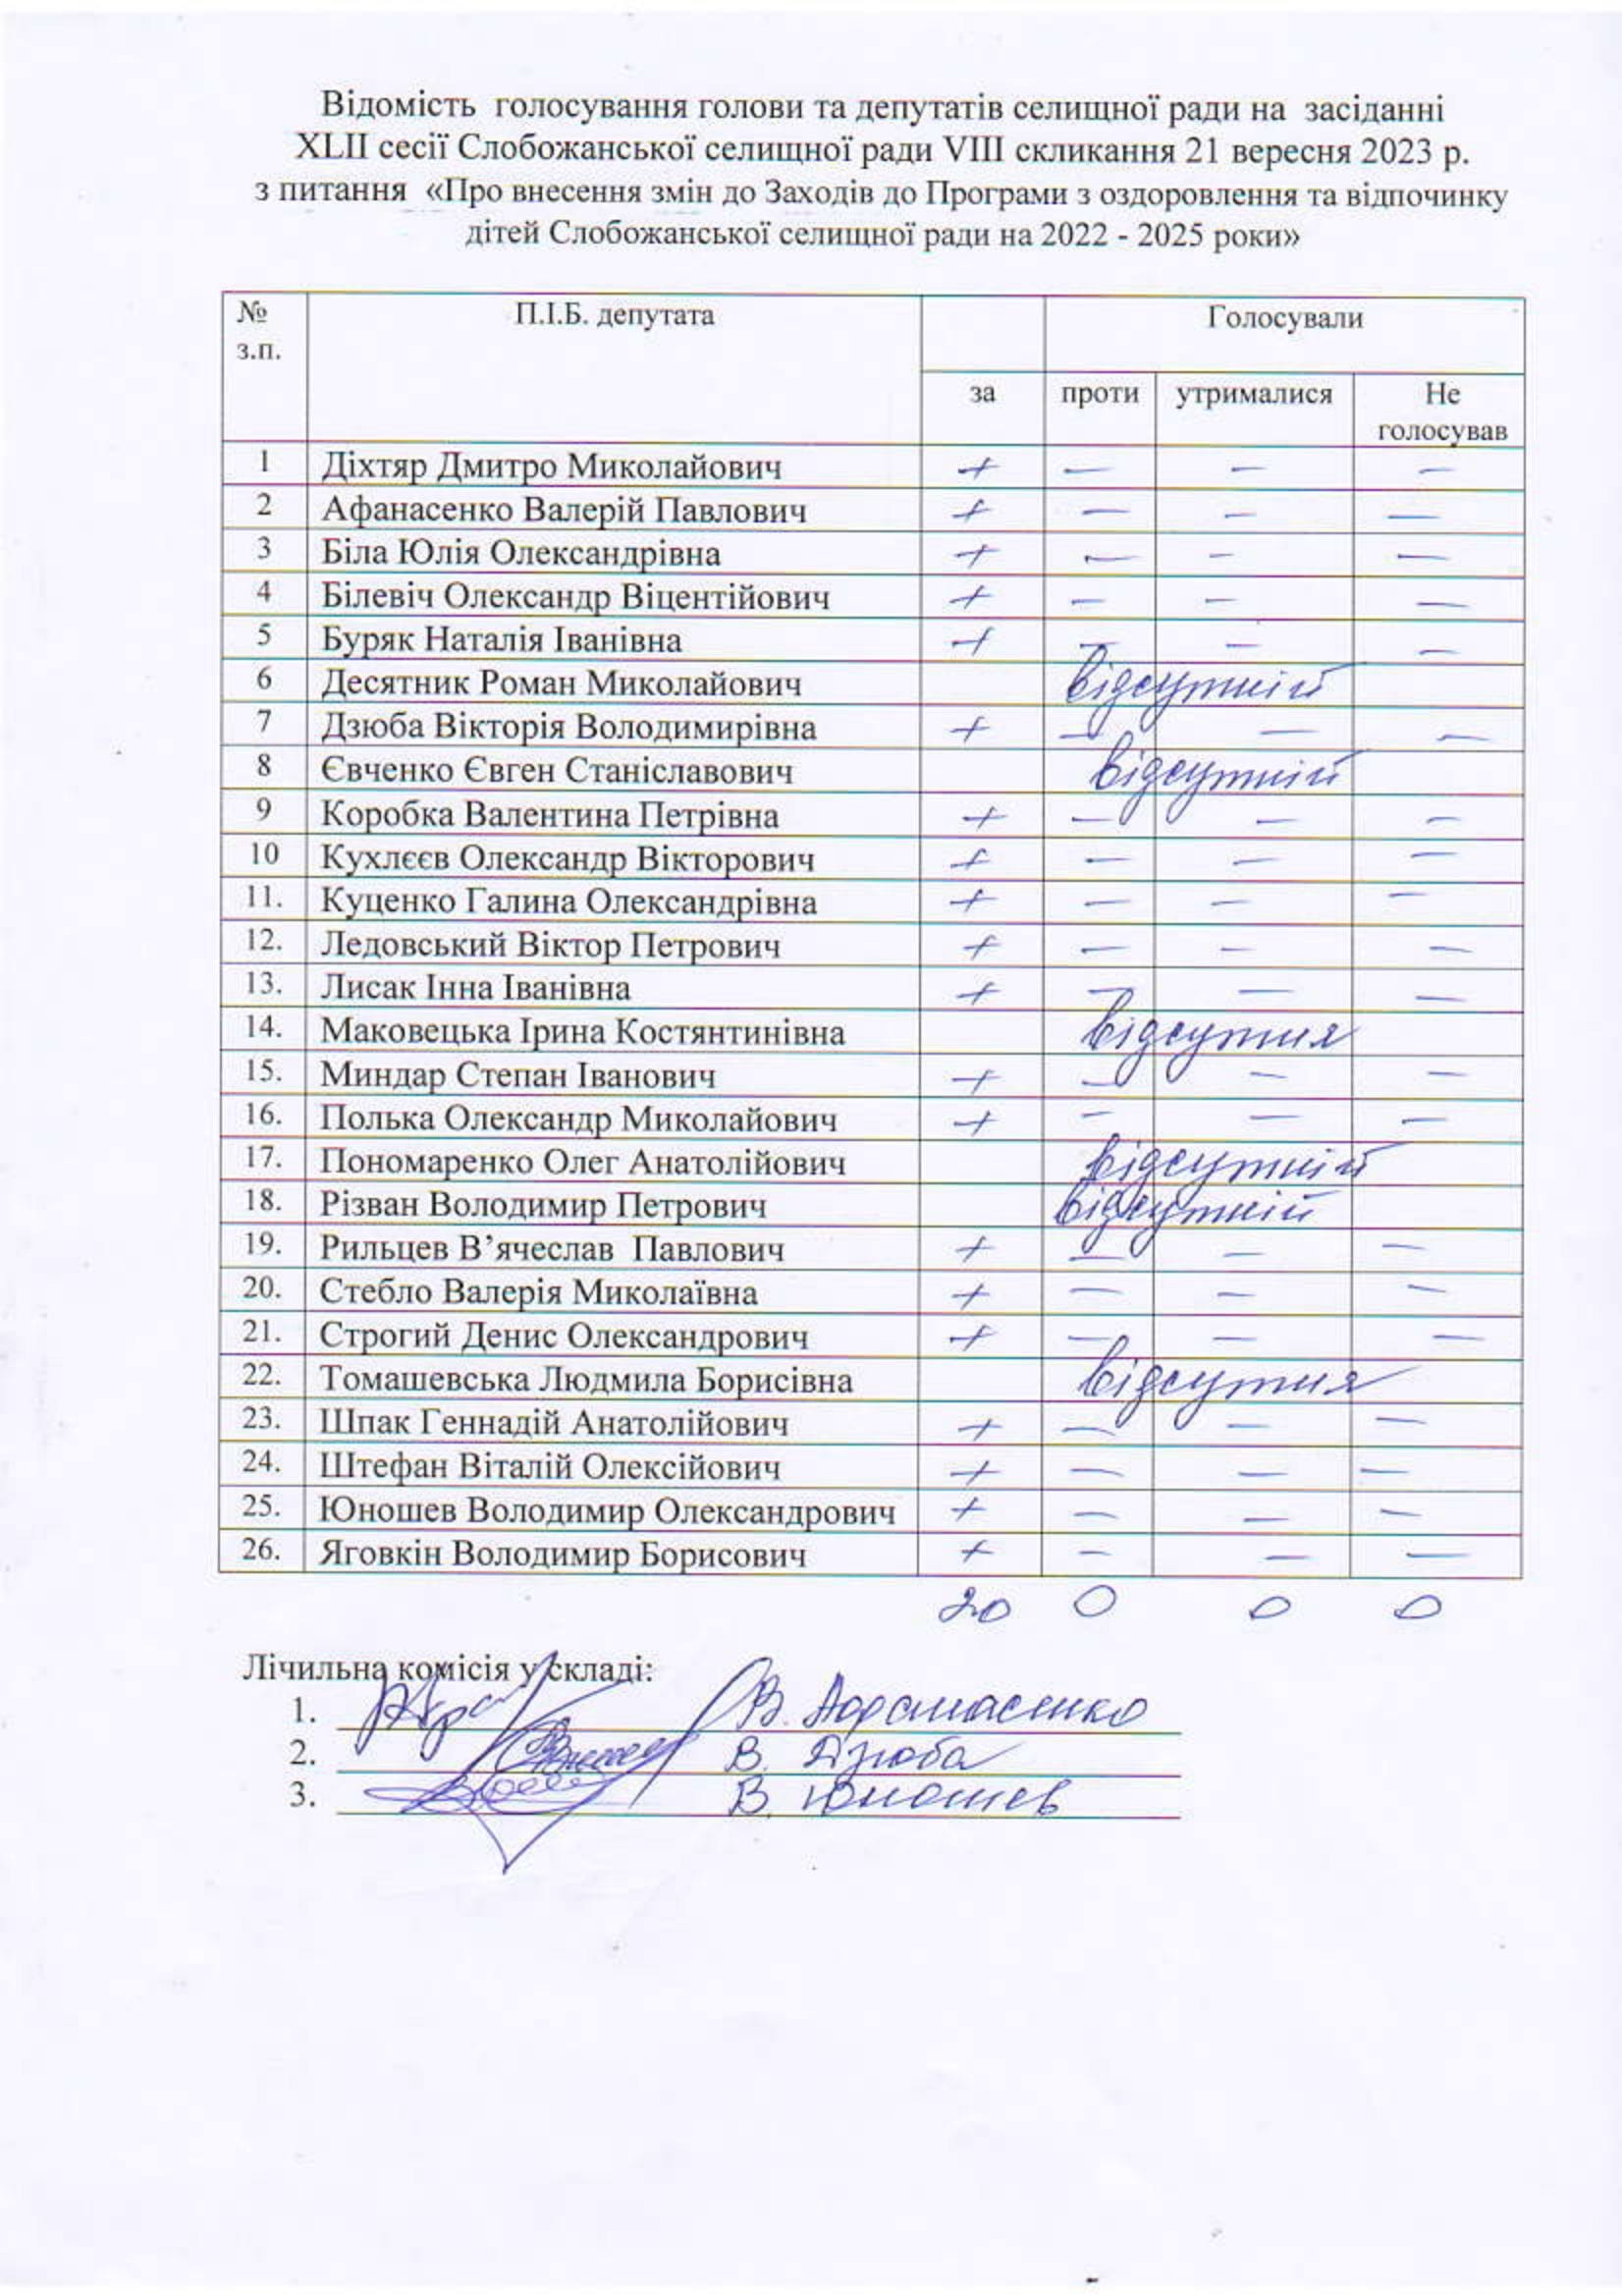 Відомість голосування голови та депутатів селищної ради на засіданні
XLII сесії Слобожанської селищної ради VIII скликання 21 вересня 2023 р.
з питання «Про внесення змін до Заходів до Програми з оздоровлення та відпочинку
дітей Слобожанської селищної ради на 2022 - 2025 роки»
№ з.п. П.І.Б. депутата Голосували
за проти утрималися Не голосував
1 Діхтяр Дмитро Миколайович + — — —
2 Афанасенко Валерій Павлович + — — —
3 Біла Юлія Олександрівна + — — —
4 Білевіч Олександр Віцентійович + — — —
5 Буряк Наталія Іванівна + — — —
6 Десятник Роман Миколайович відсутній
7 Дзюба Вікторія Володимирівна + — — —
8 Євченко Євген Станіславович відсутній
9 Коробка Валентина Петрівна + — — —
10 Кухлєєв Олександр Вікторович + — — —
11. Куценко Галина Олександрівна + — — —
12. Ледовський Віктор Петрович + — — —
13. Лисак Інна Іванівна + — — —
14. Маковецька Ірина Костянтинівна відсутня
15. Миндар Степан Іванович + — — —
16. Полька Олександр Миколайович + — — —
17. Пономаренко Олег Анатолійович відсутній
18. Різван Володимир Петрович відсутній
19. Рильцев В’ячеслав Павлович + — — —
20. Стебло Валерія Миколаївна + — — —
21. Строгий Денис Олександрович + — — —
22. Томашевська Людмила Борисівна відсутня
23. Шпак Геннадій Анатолійович + — — —
24. Штефан Віталій Олексійович + — — —
25. Юношев Володимир Олександрович + — — —
26. Яговкін Володимир Борисович + — — —
20 0 0 0
Лічильна комісія у складі:
1. В. Афанасенко
2. В. Дзюба
3. В. Юношев